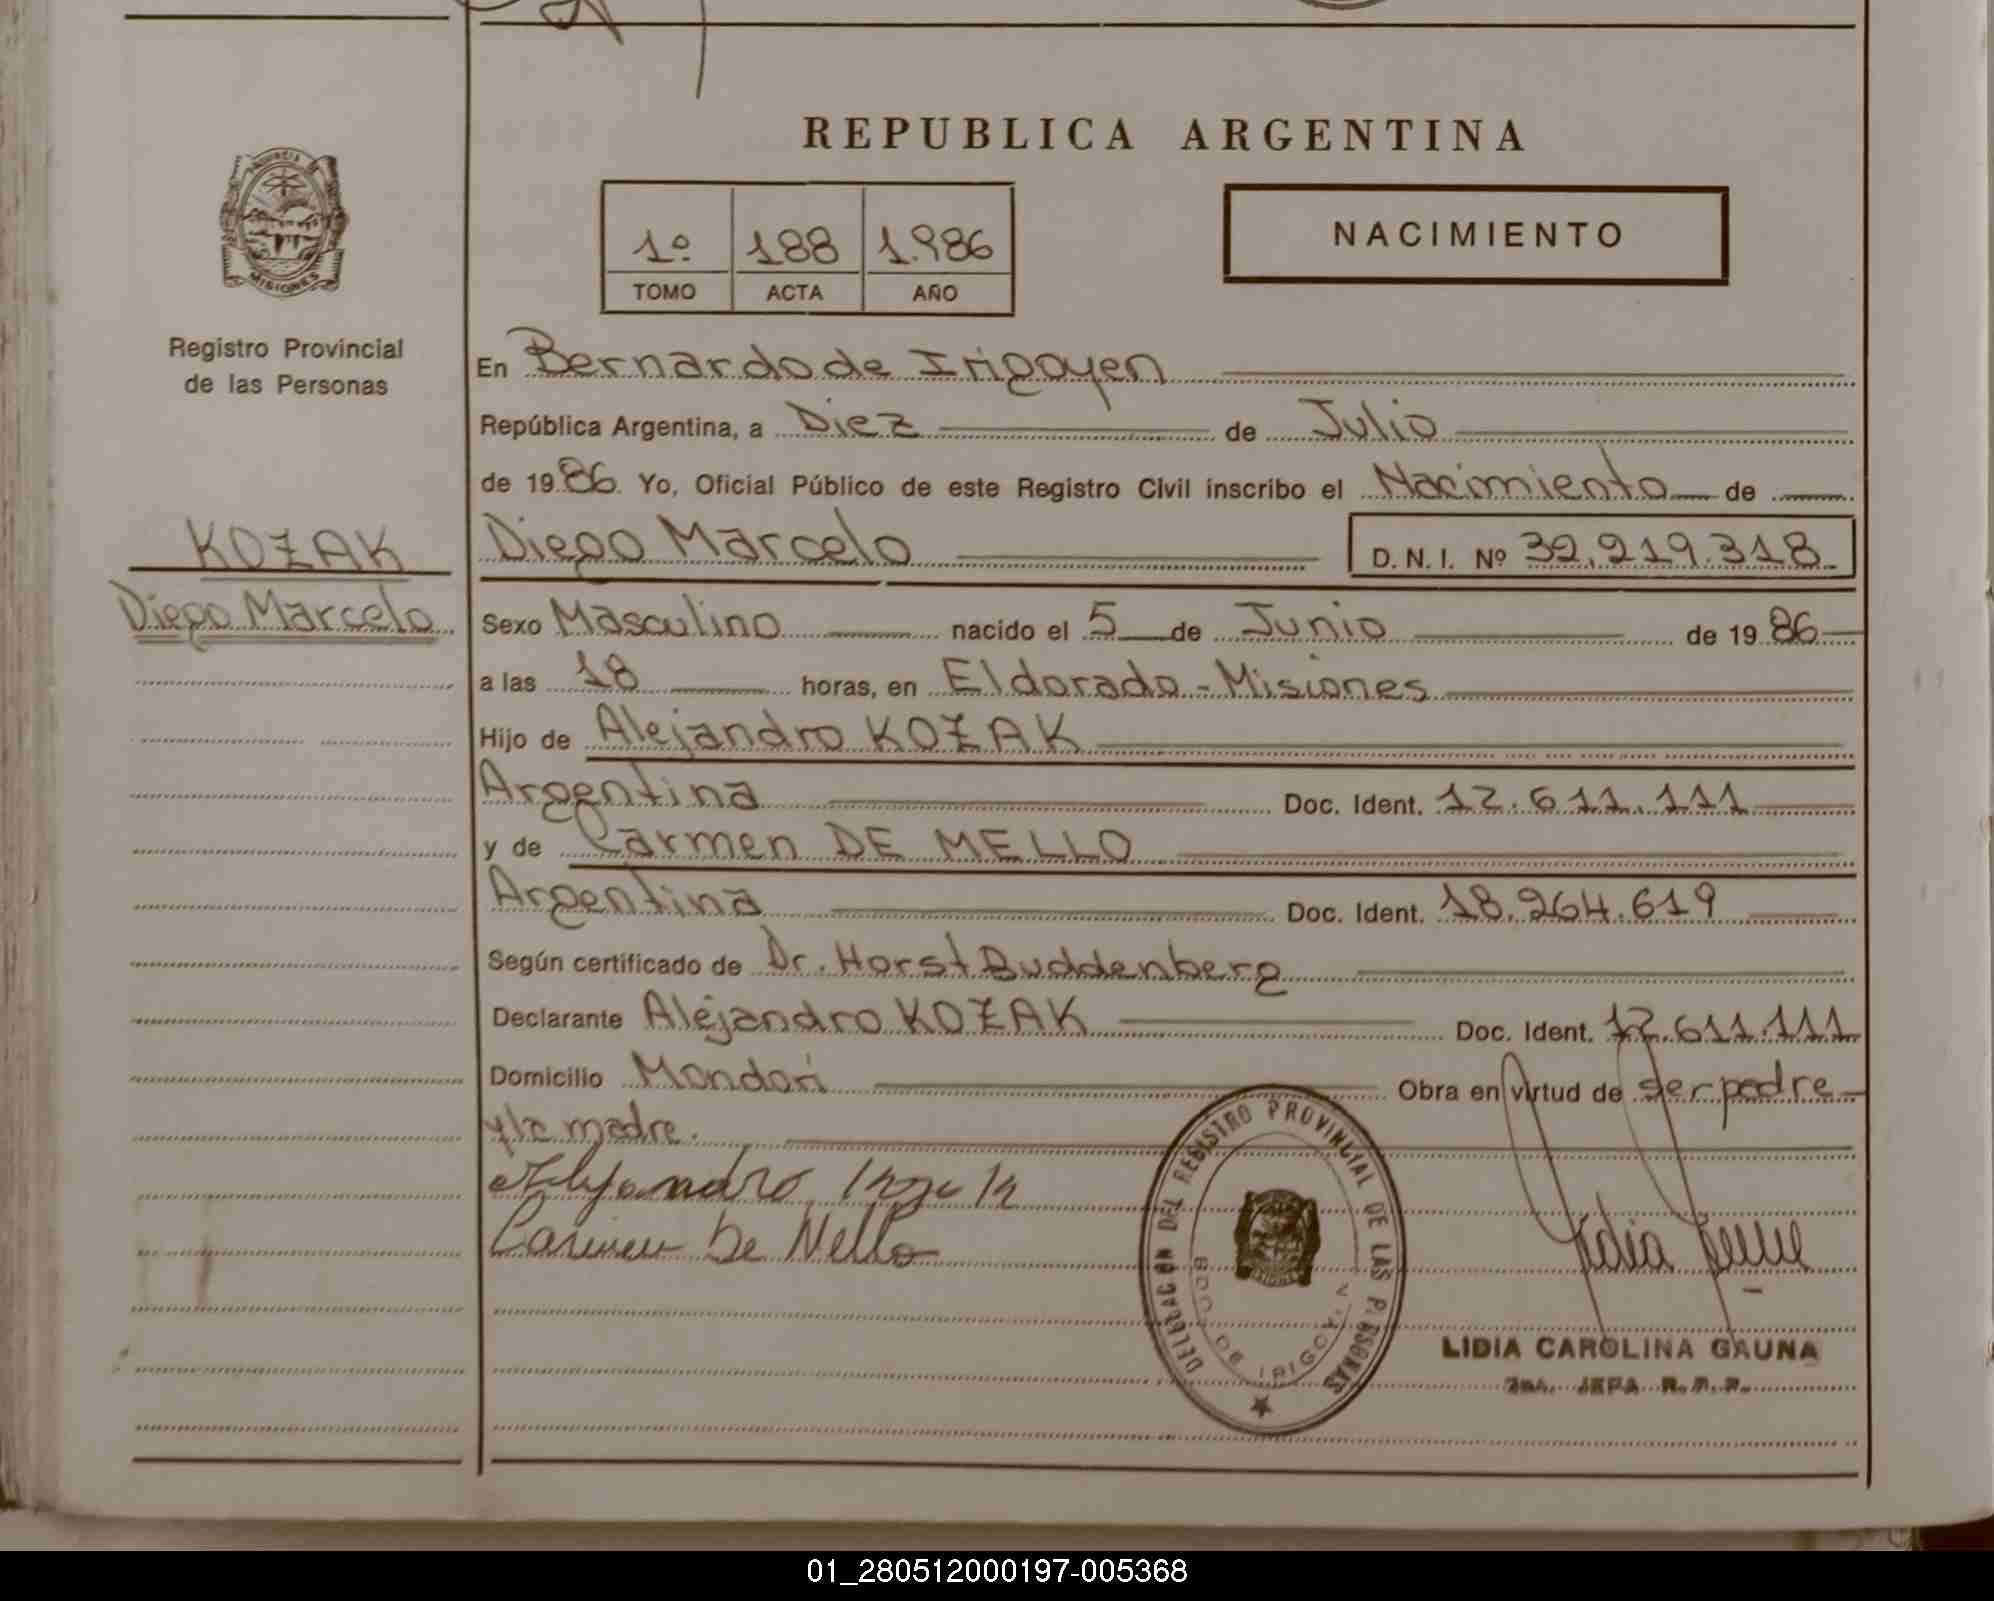 REPUBLICA ARGENTINA
1º 188 1.986
TOMO ACTA AÑO
NACIMIENTO
MISIONES
Registro Provincial
de las Personas
KOZAK
Diego Marcelo
En Bernardo de Irigoyen
República Argentina, a Diez de Julio
de 19 86 Yo, Oficial Público de este Registro Civil inscribo el Nacimiento de
Diego Marcelo D.N.I. Nº 32.219.318
Sexo Masculino nacido el 5 de Junio de 19 86
a las 18 horas, en Eldorado - Misiones
Hijo de Alejandro KOZAK
Argentina Doc. Ident. 12.611.111
y de Carmen DE MELLO
Argentina Doc. Ident. 18.264.619
Según certificado de Dr. Horst Buddenberg
Declarante Alejandro KOZAK Doc. Ident. 12.611.111
Domicilio Mondori Obra en virtud de ser padre
y la madre.
Alejandro Kozak
Carmen De Mello
DELEGACION DEL REGISTRO PROVINCIAL DE LAS PERSONAS
BDO. DE IRIGOYEN
LIDIA CAROLINA GAUNA
JEFA R.P.P.
01_280512000197-005368